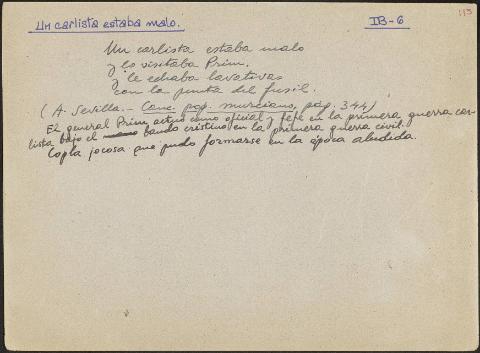 113
Un carlista estaba malo.
IB-6
Un carlista estaba malo
y lo visitaba Prim.
y le echaba lavativas
con la punta del fusil.
(A. Sevilla.- Canc. pop. murciano, pág. 344)
El general Prim actuó como oficial y jefe en la primera guerra car-
lista bajo el bando cristino en la primera guerra civil.
Copla jocosa que pudo formarse en la época aludida.